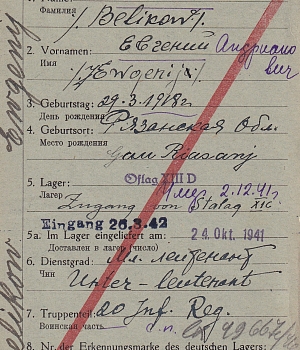 1. Name:
Фамилия
/Belikow/.
2. Vornamen:
Имя
Евгений Андрианович
/Ewgenij/
3. Geburtstag: 29.3.1918г.
День рождения
4. Geburtsort: Рязанская Обл.
Место рождения
Gau Rasanj
5. Lager:
Лагерь
Oflag XIII D
Умер. 2.12.41г.
Zugang von Stalag XIC
Eingang 26.3.42
5a. Im Lager eingeliefert am: 24. Okt. 1941
Доставлен в лагерь (число)
6. Dienstgrad: Мл. лейтенант
Чин
Unter-leutenant
7. Truppenteil: 20 Inf. Reg.
Воинская часть
8. Nr. der Erkennungsmarke des deutschen Lagers:
Ewgenij
Belikow